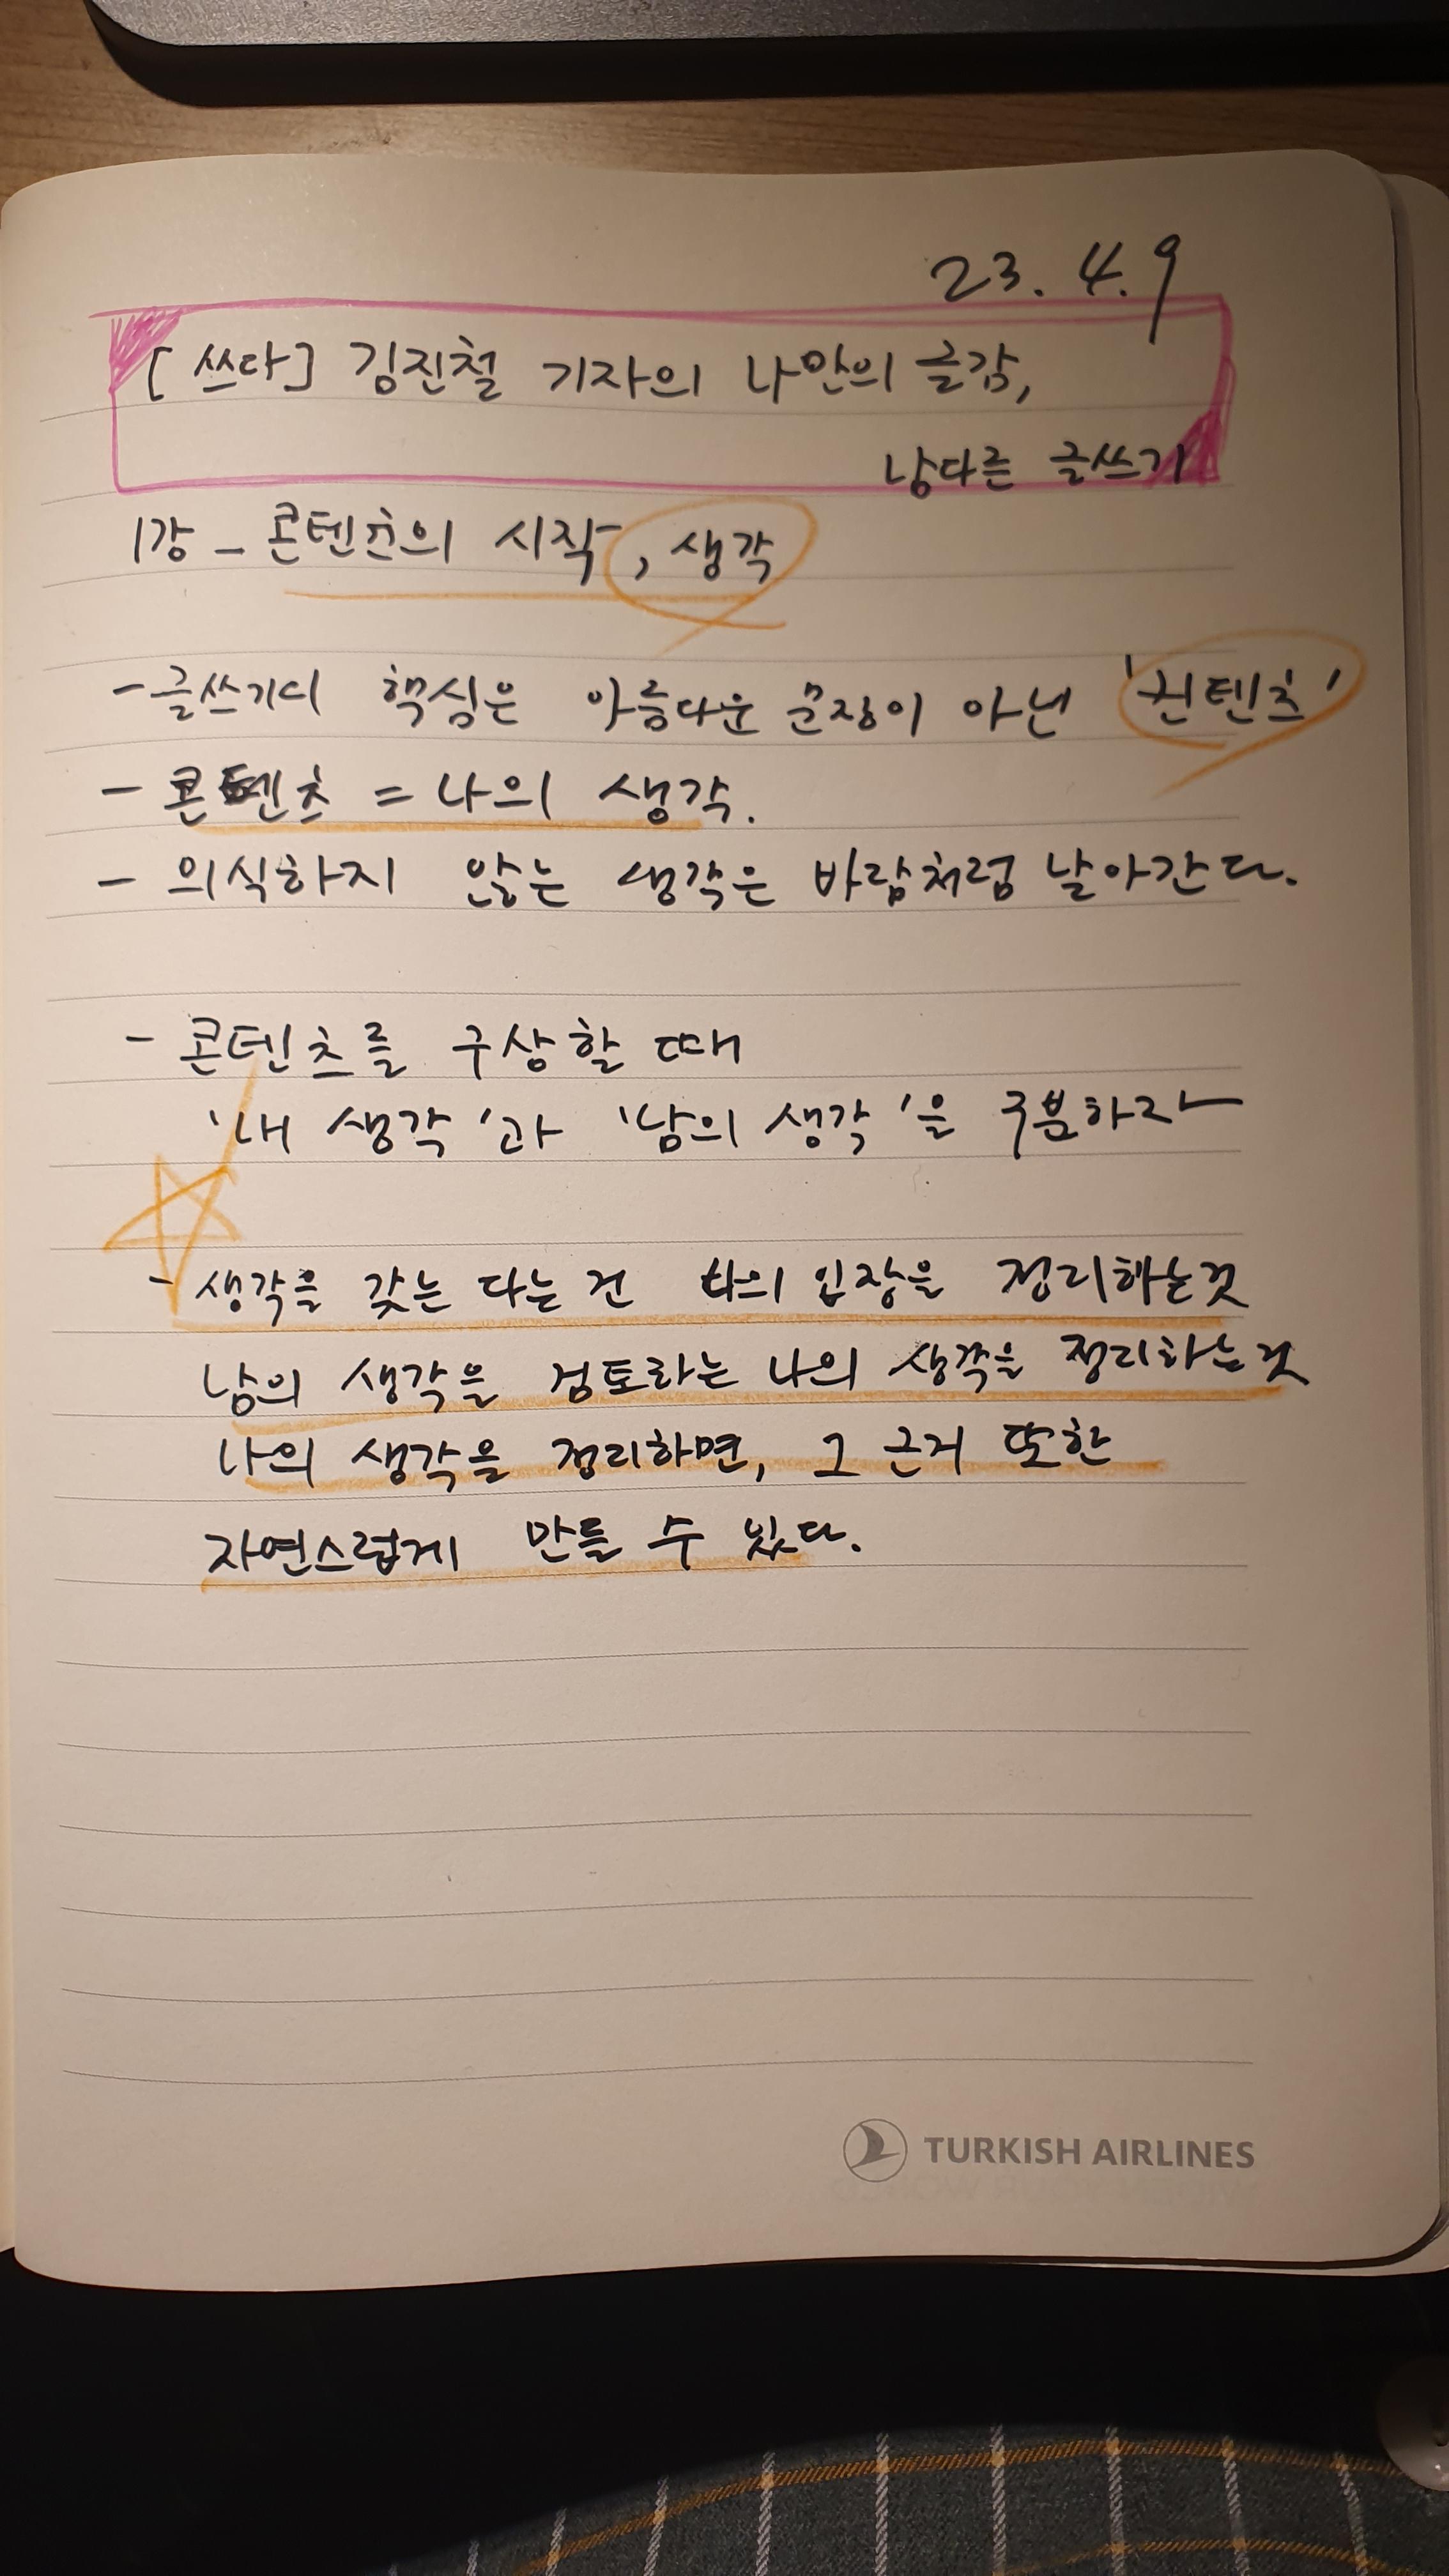 23. 4. 9
[쓰다] 김진철 기자의 나만의 글감,
남다른 글쓰기
1강 - 콘텐츠의 시작, 생각
- 글쓰기의 핵심은 아름다운 문장이 아닌 '컨텐츠'
- 콘텐츠 = 나의 생각.
- 의식하지 않는 생각은 바람처럼 날아간다.
- 콘텐츠를 구상할 때
'내 생각'과 '남의 생각'을 구분하자
- 생각을 갖는 다는 건 나의 입장을 정리하는것
남의 생각을 검토라는 나의 생각을 정리하는것
나의 생각을 정리하면, 그 근거 또한
자연스럽게 만들 수 있다.
TURKISH AIRLINES